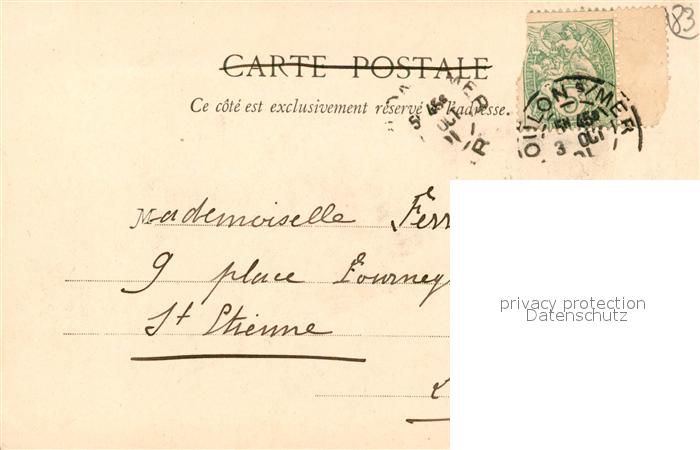 183
CARTE POSTALE
Ce côté est exclusivement réservé à l'adresse.
Mademoiselle Ferr
9 place Fourney
St Etienne
privacy protection
Datenschutz